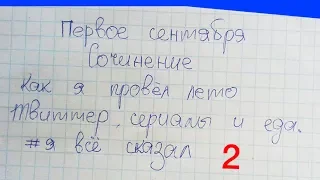 Первое сентября
Сочинение
Как я провёл лето
Твиттер, сериалы и еда.
#я всё сказал
2